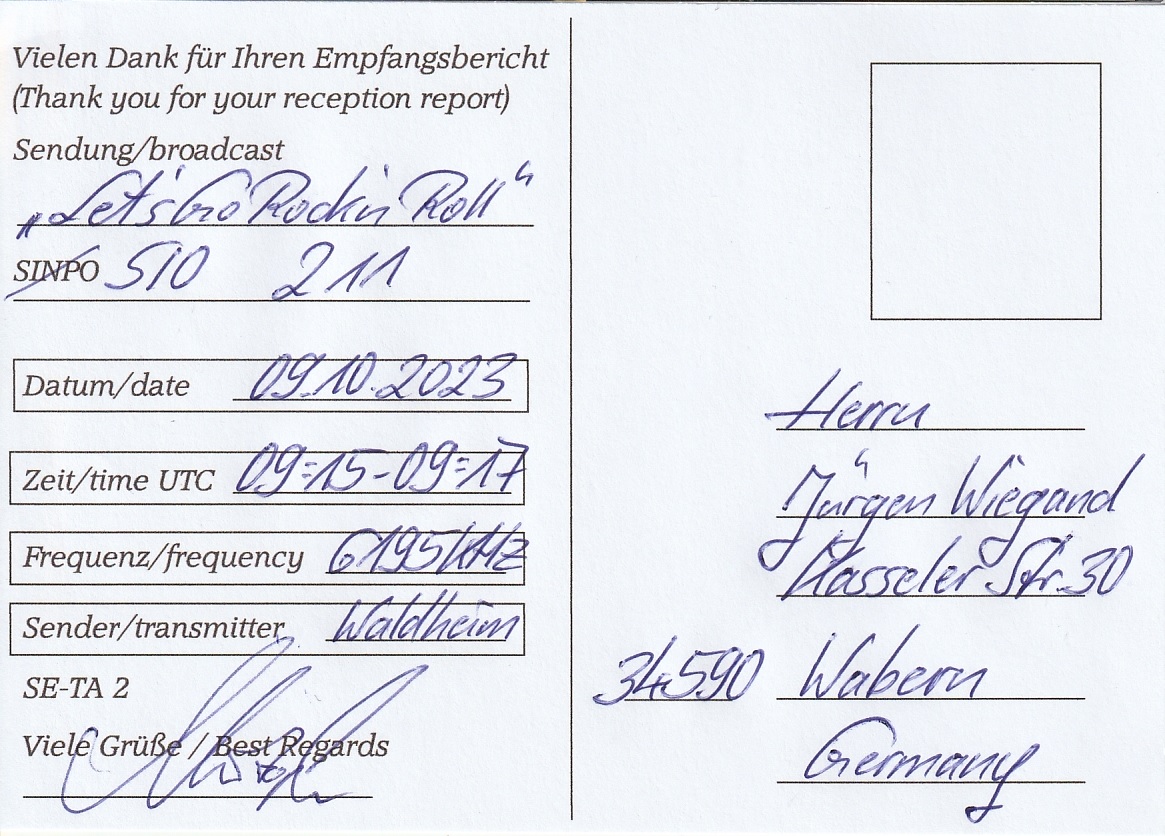 Vielen Dank für Ihren Empfangsbericht
(Thank you for your reception report)
Sendung/broadcast
„Let's Go Rock'n Roll“
SINPO SIO 211
Datum/date 09.10.2023
Zeit/time UTC 09:15-09:17
Frequenz/frequency 6195 kHz
Sender/transmitter Waldheim
SE-TA 2
Viele Grüße / Best Regards
Herrn
Jürgen Wiegand
Kasseler Str. 30
34590 Wabern
Germany